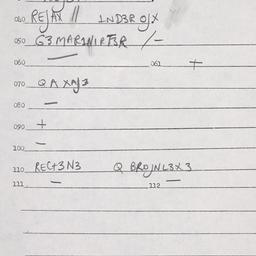 040 RE/AX // 1ND3R O/X
050 G3MAR1N1PT3R /-
060 — 061 +
070 QA XA/3
080 —
090 +
100 —
110 REC+3N3 Q BRO/NL3X3
111 — 112 —